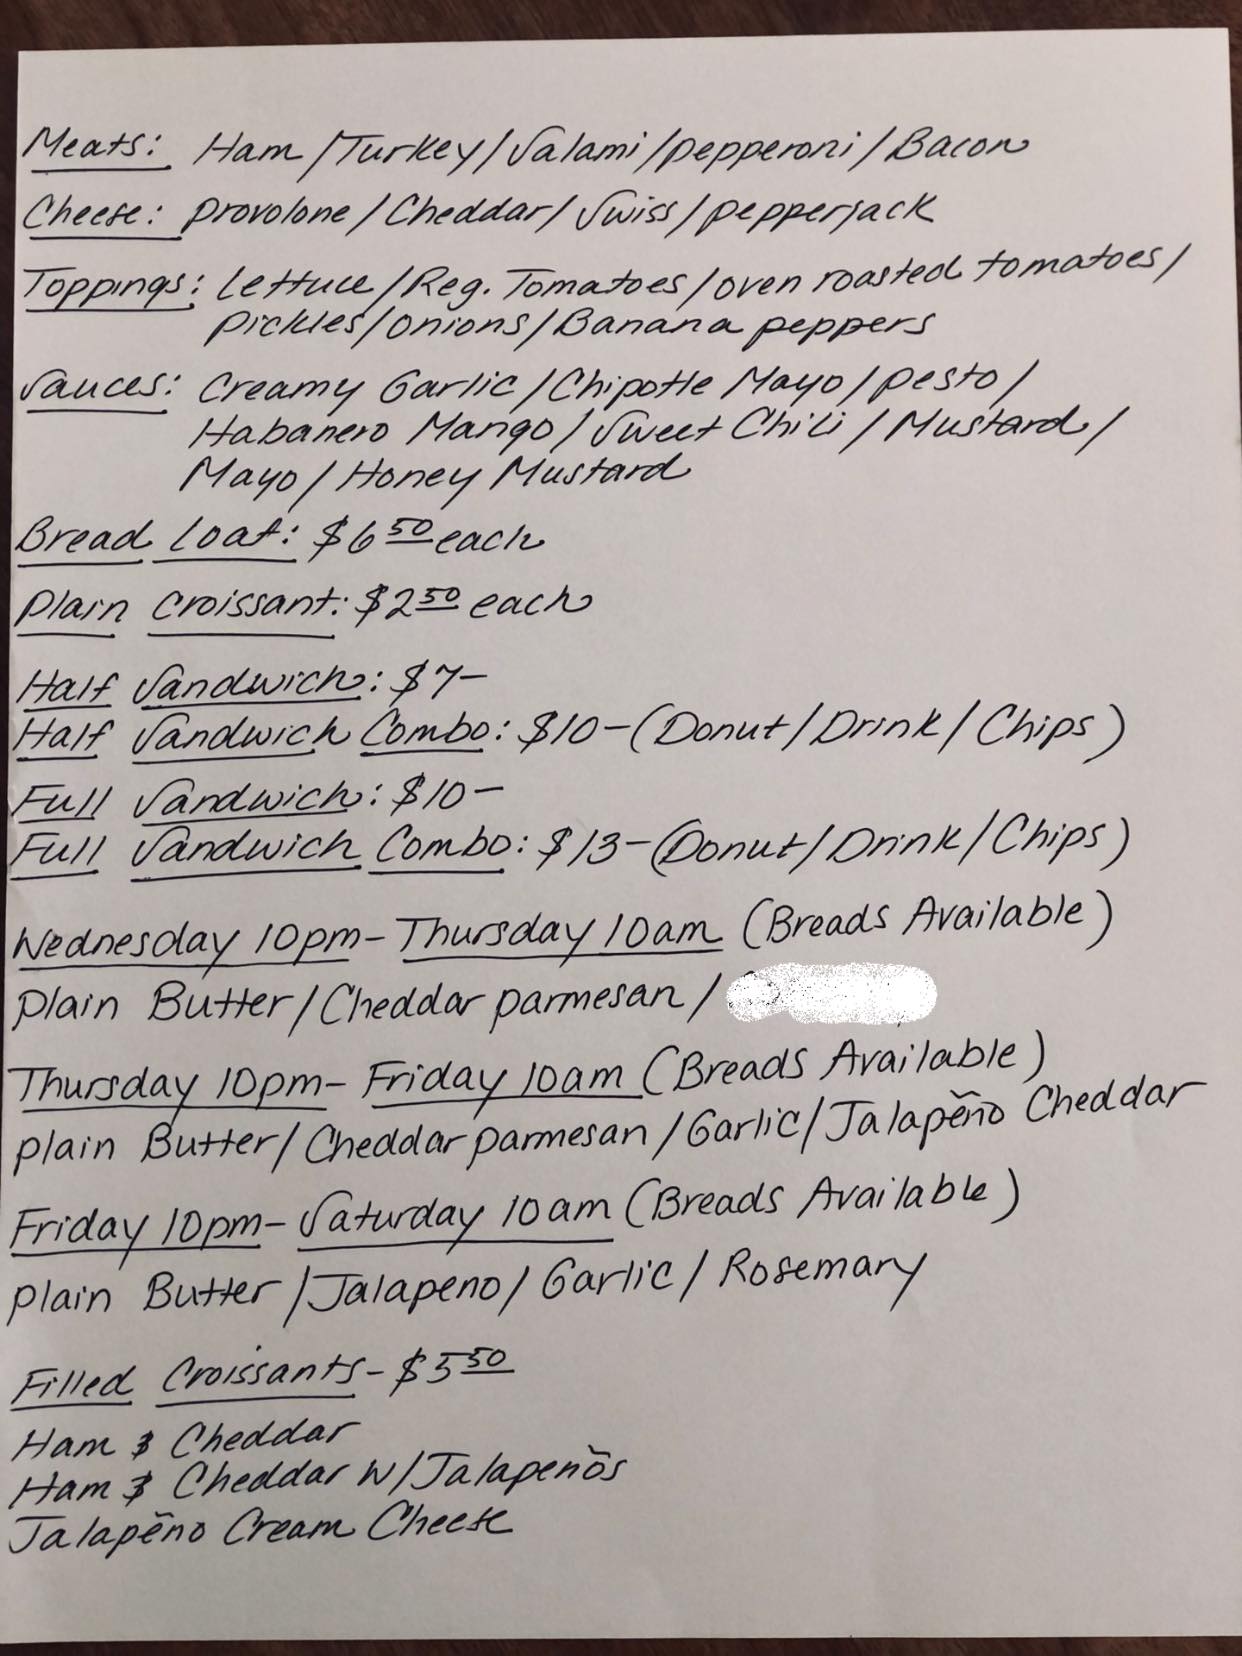 Meats: Ham/Turkey/Salami/pepperoni/Bacon
Cheese: provolone/Cheddar/Swiss/pepperjack
Toppings: Lettuce/Reg. Tomatoes/oven roasted tomatoes/
pickles/onions/Banana peppers
Sauces: Creamy Garlic/Chipotle Mayo/pesto/
Habanero Mango/Sweet Chili/Mustard/
Mayo/Honey Mustard
Bread Loaf: $6 50 each
Plain Croissant: $2 50 each
Half Sandwich: $7-
Half Sandwich Combo: $10-(Donut/Drink/Chips)
Full Sandwich: $10-
Full Sandwich Combo: $13-(Donut/Drink/Chips)
Wednesday 10pm-Thursday 10am (Breads Available)
plain Butter/Cheddar parmesan/
Thursday 10pm-Friday 10am (Breads Available)
plain Butter/Cheddar parmesan/Garlic/Jalapeño Cheddar
Friday 10pm-Saturday 10am (Breads Available)
plain Butter/Jalapeno/Garlic/Rosemary
Filled Croissants-$5 50
Ham & Cheddar
Ham & Cheddar w/Jalapeños
Jalapeño Cream Cheese